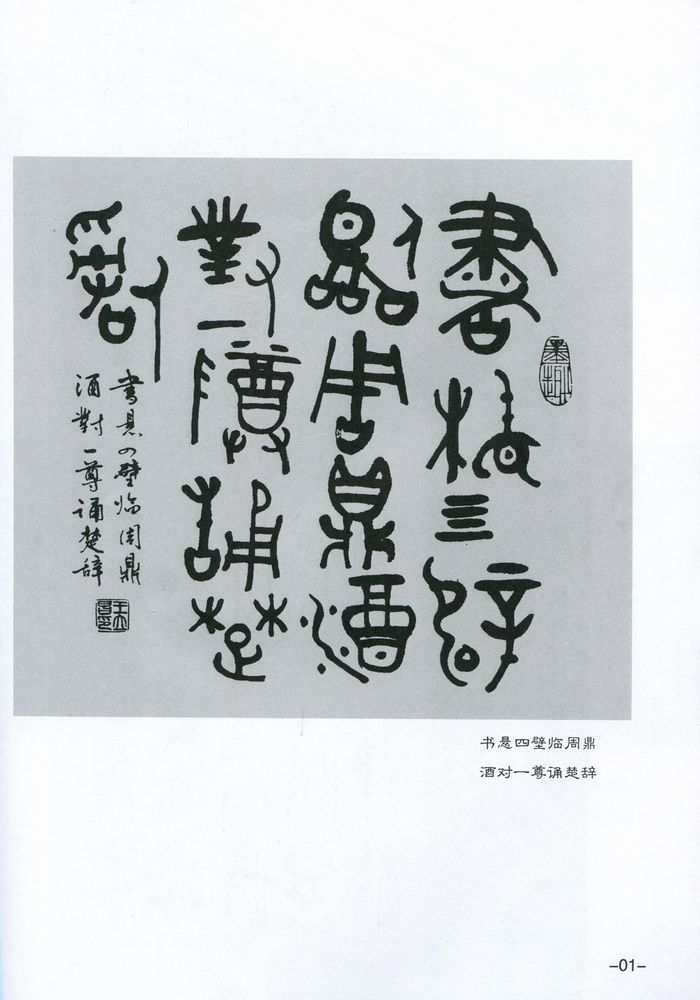 書縣四壁
臨周鼎酒
對一尊誦楚
辭
書悬四壁临周鼎
酒對一尊诵楚辞
书悬四壁临周鼎
酒对一尊诵楚辞
-01-